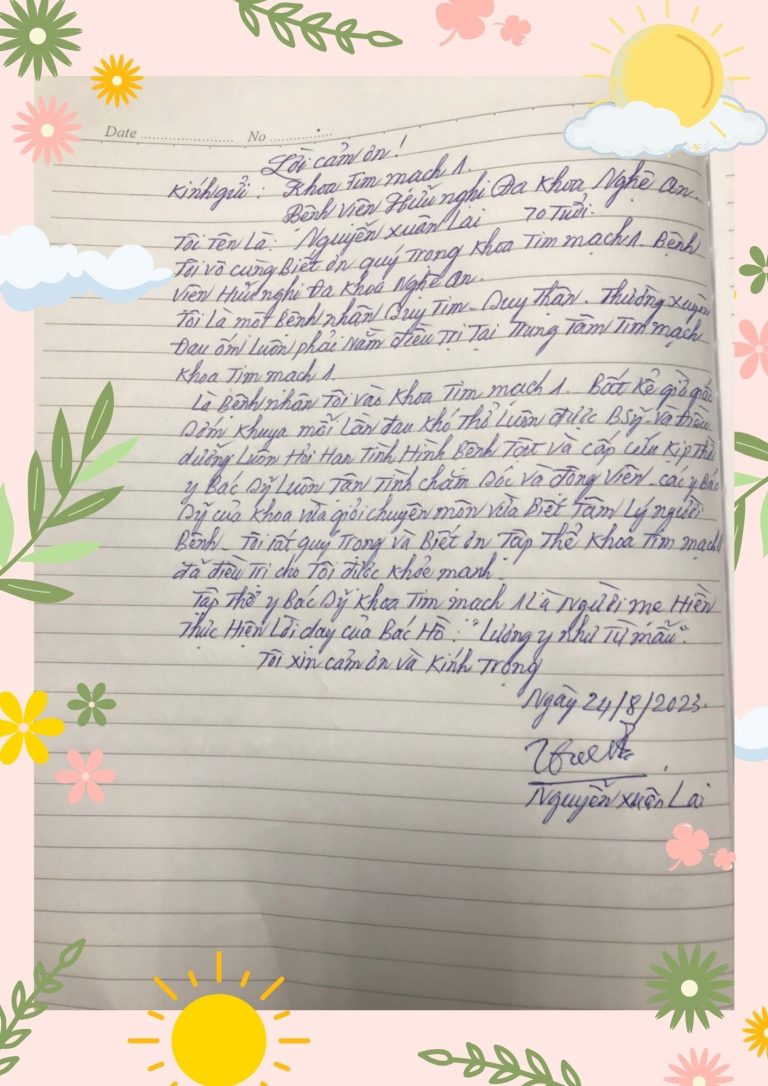 Date ........................ No ..................
Lời cảm ơn!
Kính gửi: Khoa Tim mạch 1.
Bệnh viện Hữu nghị Đa Khoa Nghệ An.
Tôi Tên Là: Nguyễn Xuân Lai 70 Tuổi.
Tôi vô cùng Biết ơn quý trọng Khoa Tim mạch 1. Bệnh
viện Hữu nghị Đa Khoa Nghệ An.
Tôi Là một Bệnh nhân Suy Tim - Suy Thận. Thường xuyên
Đau ốm Luôn phải Nằm điều Trị Tại Trung Tâm Tim mạch
Khoa Tim mạch 1.
Là Bệnh nhân Tôi vào Khoa Tim mạch 1. Bất Kể giờ giấc
Sớm Khuya mỗi Lần đau Khó Thở Luôn được BSỹ và Điều
dưỡng Luôn Hỏi Han Tình Hình Bệnh Tật và cấp cứu Kịp Thời
y Bác Sỹ Luôn Tận Tình chăm Sóc và động viên. các y Bác
Sỹ của Khoa vừa giỏi chuyên môn vừa Biết Tâm Lý người
Bệnh. Tôi rất quý Trọng và Biết ơn Tập Thể Khoa Tim mạch 1
đã điều Trị cho Tôi được Khỏe mạnh.
Tập Thể y Bác Sỹ Khoa Tim mạch 1 Là Người mẹ Hiền
Thực Hiện Lời dạy của Bác Hồ: "Lương y như Từ mẫu".
Tôi xin cảm ơn và Kính Trọng
Ngày 24/8/2023.
Nguyễn Xuân Lai